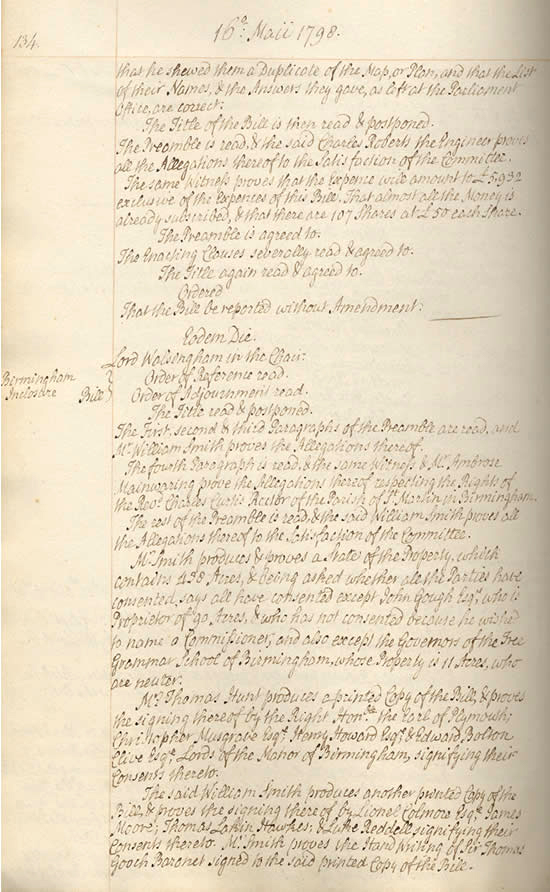 134.
16.º Maii 1798.
that he shewed them a Duplicate of the Map, or Plan, and that the List
of their Names, & the Answers they gave, as left at the Parliament
Office, are correct:
The Title of the Bill is then read & postponed.
The Preamble is read, & the said Charles Roberts the Engineer proves
all the Allegations thereof to the Satisfaction of the Committee.
The same Witness proves that the Expence will amount to £5,932
exclusive of the Expences of this Bill. That almost all the Money is
already subscribed, & that there are 107 Shares at £50 each Share.
The Preamble is agreed to.
The Enacting Clauses severally read & agreed to.
The Title again read & agreed to.
Ordered
That the Bill be reported without Amendment:
Eodem Die.
Lord Walsingham in the Chair.
Birmingham
Inclosure Bill
Order of Reference read.
Order of Adjournment read.
The Title read & postponed.
The First, second & third Paragraphs of the Preamble are read, and
Mr. William Smith proves the Allegations thereof.
The fourth Paragraph is read, & the same Witness & Mr. Ambrose
Mainwaring prove the Allegations thereof respecting the Rights of
the Revd. Charles Curtis Rector of the Parish of St. Martin in Birmingham.
The rest of the Preamble is read, & the said William Smith proves all
the Allegations thereof to the Satisfaction of the Committee.
Mr. Smith produces & proves a State of the Property, which
contains Acres, & being asked whether all the Parties have
consented, says all have consented except John Gough Esqr. who is
Proprietor of 90 Acres, & who has not consented because he wished
to name a Commissioner, and also except the Governors of the Free
Grammar School of Birmingham, whose Property is 11 Acres, who
are neuter.
Mr. Thomas Hunt produces a printed Copy of the Bill, & proves
the signing thereof by the Right Honble. the Earl of Plymouth,
Christopher Musgrave Esqr. Henry Howard Esqr. & Edward Bolton
Clive Esqr. Lords of the Manor of Birmingham, signifying their
Consents thereto.
The said William Smith produces another printed Copy of the
Bill, & proves the signing thereof by Lionel Colmore Esqr. James
Moore; Thomas Lakin Hawkes; & Luke Reddell signifying their
Consents thereto. Mr. Smith proves the Hand Writing of Sir Thomas
Gooch Baronet signed to the said printed Copy of the Bill.